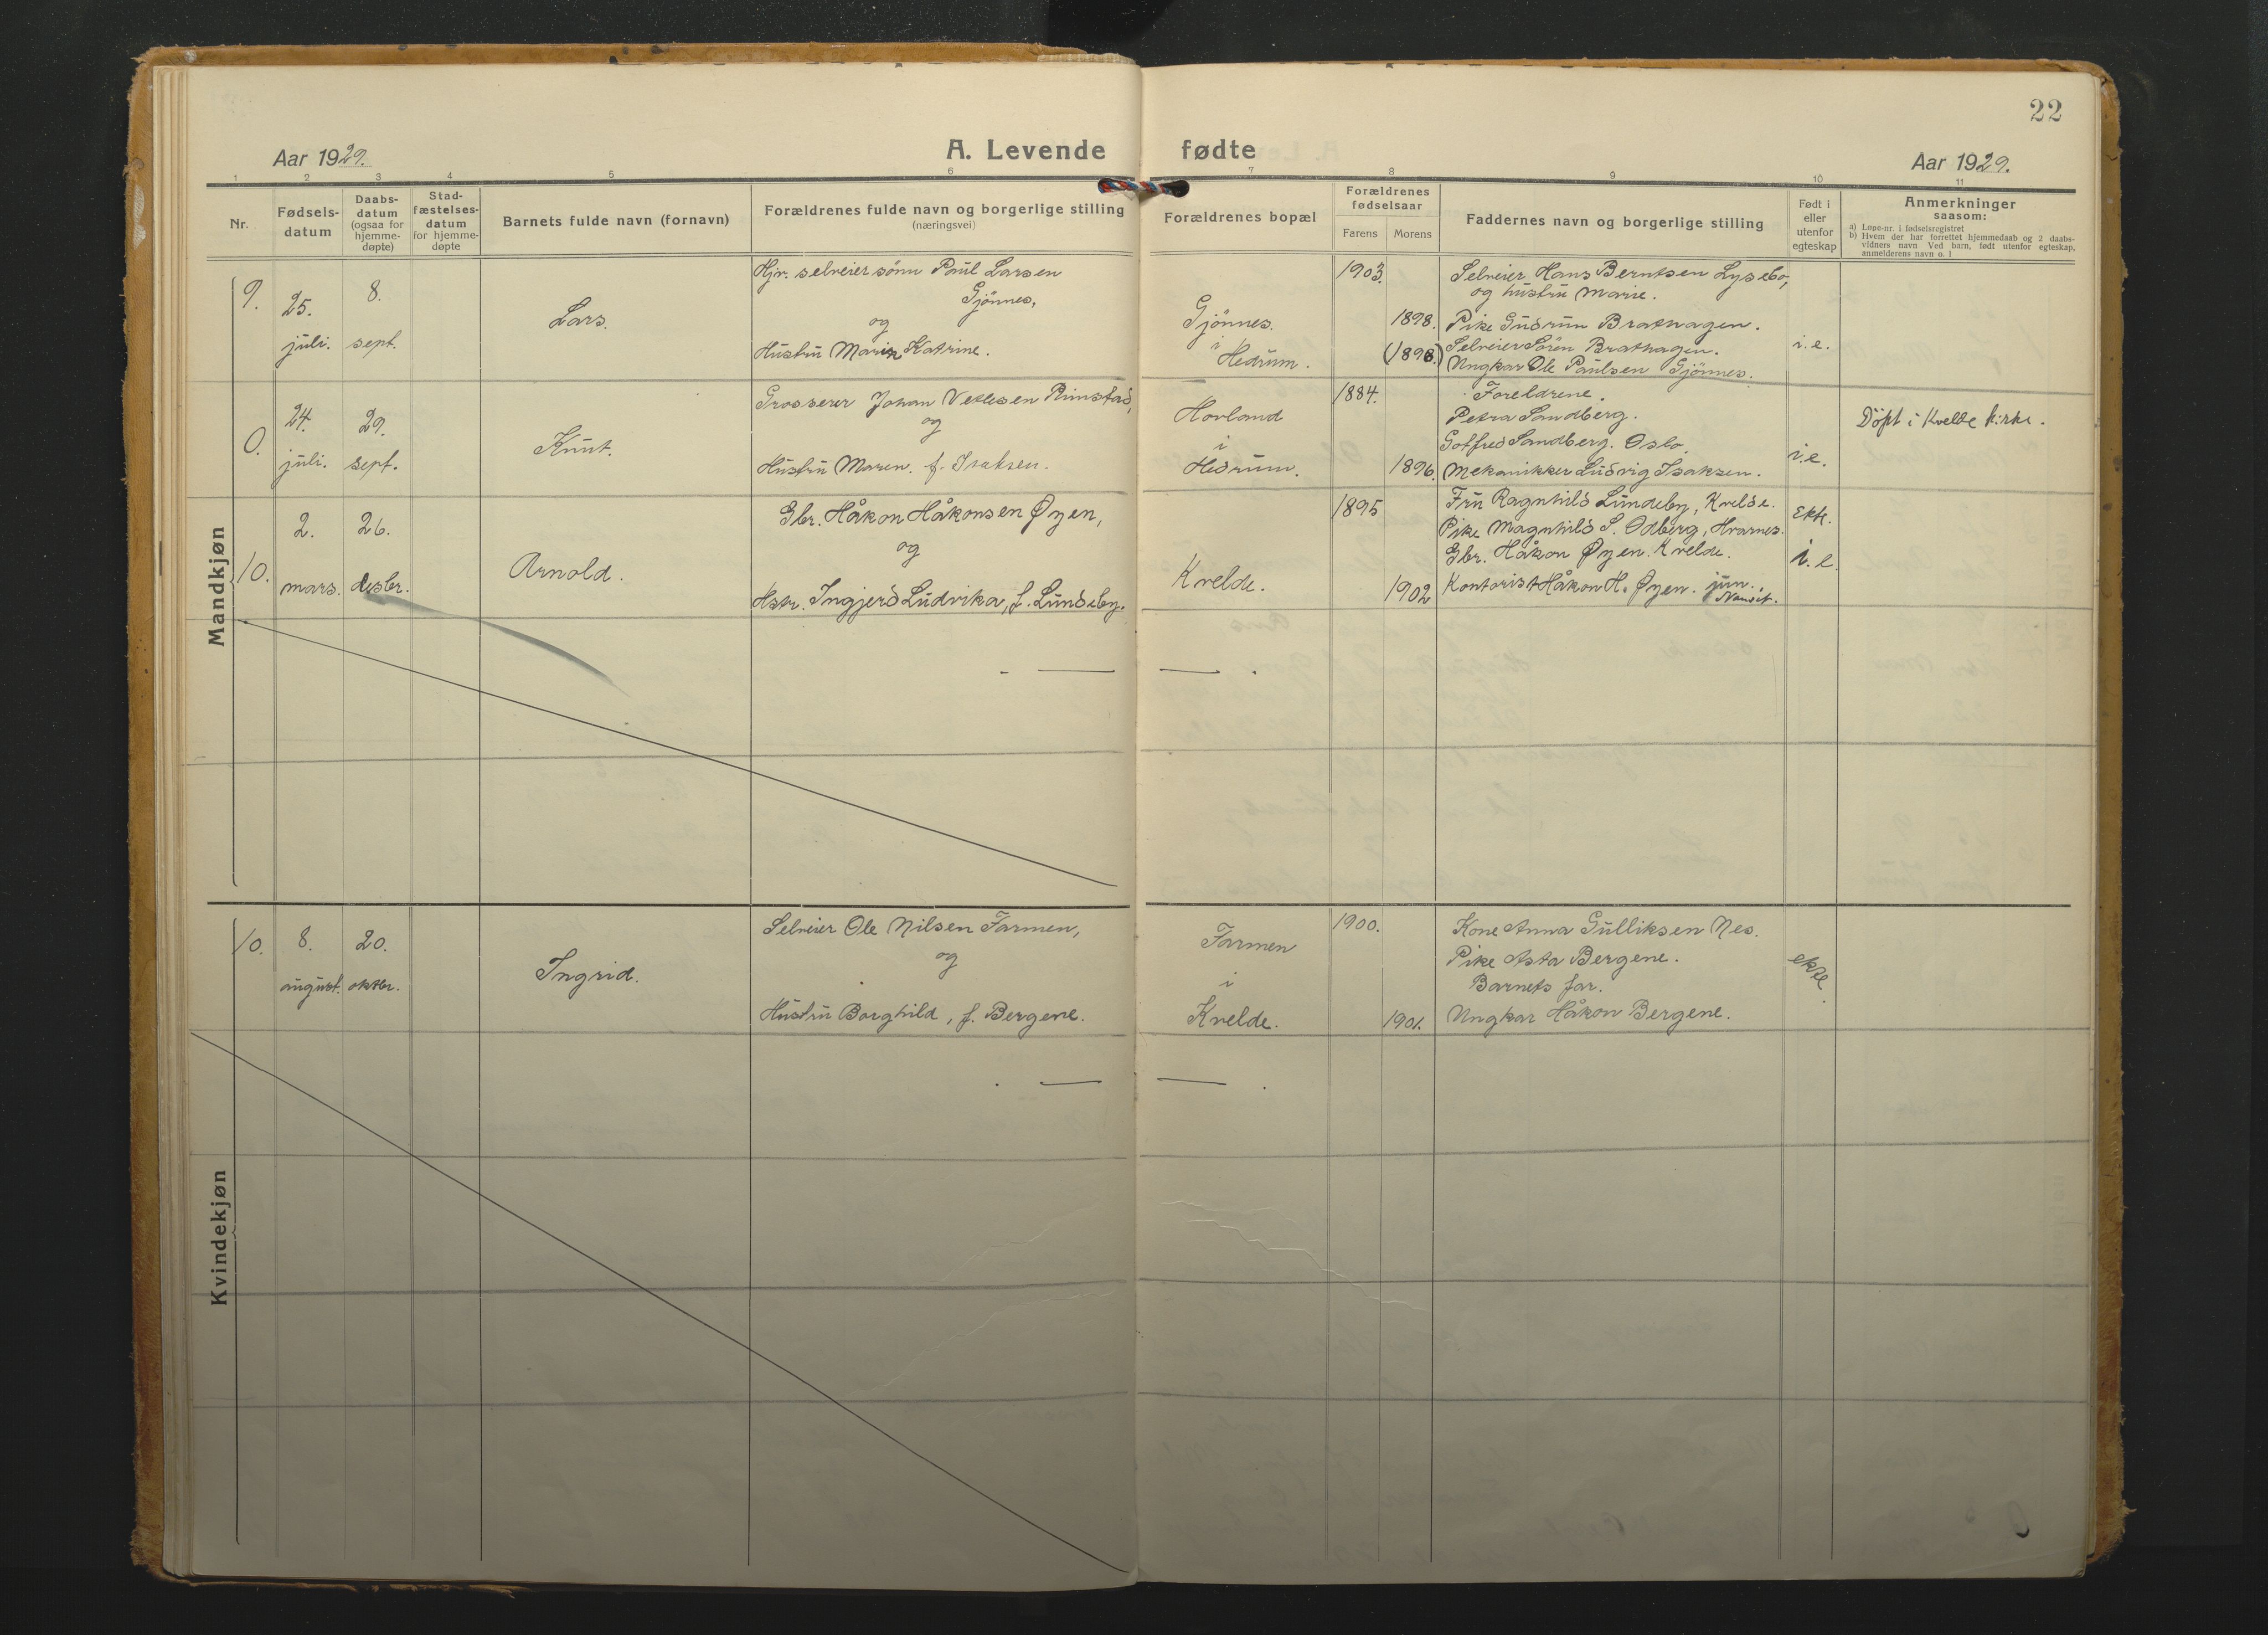 22
Aar 1929.
A. Levende fødte
Aar 1929.
1 2 3 4 5 6 7 8 9 10 11
Nr.
Fødsels-
datum
Daabs-
datum
(ogsaa for
hjemme-
døpte)
Stad-
fæstelses-
datum
for hjemme-
døpte
Barnets fulde navn (fornavn)
Forældrenes fulde navn og borgerlige stilling
(næringsvei)
Forældrenes bopæl
Forældrenes
fødselsaar
Farens
Morens
Faddernes navn og borgerlige stilling
Født i
eller
utenfor
egteskap
Anmerkninger
saasom:
a) Løpe-nr. i fødselsregistret
b) Hvem der har forrettet hjemmedaab og 2 daabs-
vidners navn Ved barn, født utenfor egteskap,
anmelderens navn o. l
Mandkjøn
9.
25.
juli.
8.
sept.
Lars.
Hjv. selveiersönn Paul Larsen
Gjönnes,
og
Hustru Marin Katrine.
Gjönnes.
i
Hedrum.
1903.
1898.
(1898.)
Selveier Hans Berntsen Lysebo,
og hustru Marie.
Pike Gudrun Brathagen.
Selveier Sören Brathagen.
Ungkar Ole Paulsen Gjönnes.
i.e.
0.
24.
juli.
29.
sept.
Knut.
Grosserer Johan Vetlesen Rimstad,
og
Hustru Maren. f. Isaksen.
Hovland
i
Hedrum.
1884.
1896.
Foreldrene.
Petra Sandberg.
Gotfred Sandberg. Oslo.
Mekanikker Ludvig Isaksen.
i.e.
Döpt i Kvelde kirke.
10.
2.
mars.
26.
desbr.
Arnold.
Gbr. Håkon Håkonsen Øyen,
og
Hstr. Ingjerd Ludvika, f. Lundeby.
Kvelde.
1895
1902
Fru Ragnhild Lundeby, Kvelde.
Pike Magnhild S. Odberg, Hvarnes.
Gbr. Håkon Øyen. Kvelde.
Kontorist Håkon H. Øyen. jun.
ekte.
i.e.
Kvindekjøn
10.
8.
august.
20.
oktbr.
Ingrid.
Selveier Ole Nilsen Farmen,
og
Hustru Borghild, f. Bergene.
Farmen
i
Kvelde.
1900.
1901.
Kone Anna Gulliksen Nes.
Pike Asta Bergene.
Barnets far.
Ungkar Håkon Bergene.
ekte.